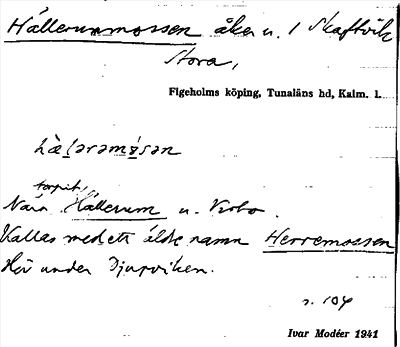 Hälleru̶mmossen åker u. 1 Skaftvik
Stora,
Figeholms köping, Tunaläns hd, Kalm. l.
hä̀lǝrǝmɷ̀sǝn
torpit,
Nära Hällerum u. Krobo.
Kallas med ett äldre namn Herremossen
Hör under Djupviken.
s. 104
Ivar Modéer 1941